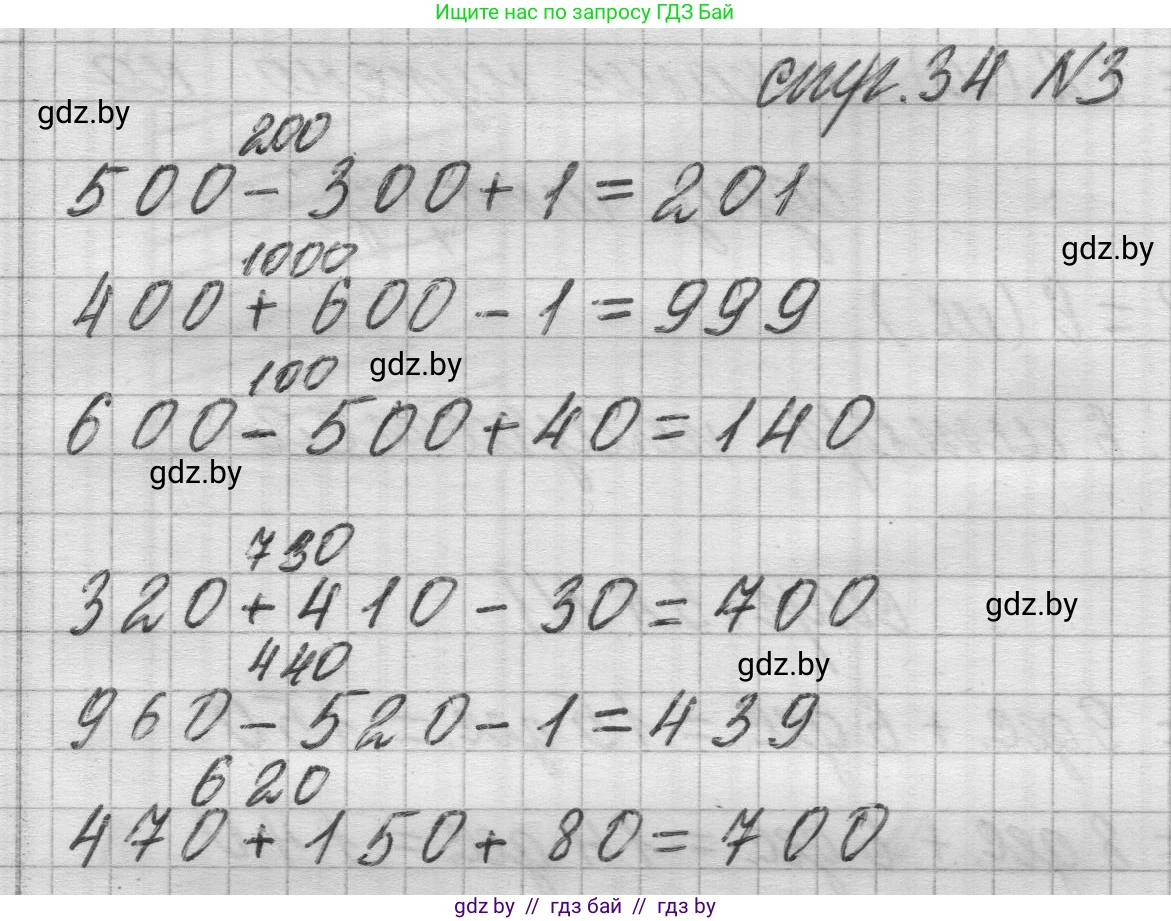 Ищите нас по запросу ГДЗ Бай
стр. 34 N3
gdz.by
200
500 - 300 + 1 = 201
gdz.by
1000
400 + 600 - 1 = 999
100
gdz.by
600 - 500 + 40 = 140
gdz.by
730
320 + 410 - 30 = 700
gdz.by
440
gdz.by
960 - 520 - 1 = 439
620
470 + 150 + 80 = 700
gdz by // гдз бай // гдз by